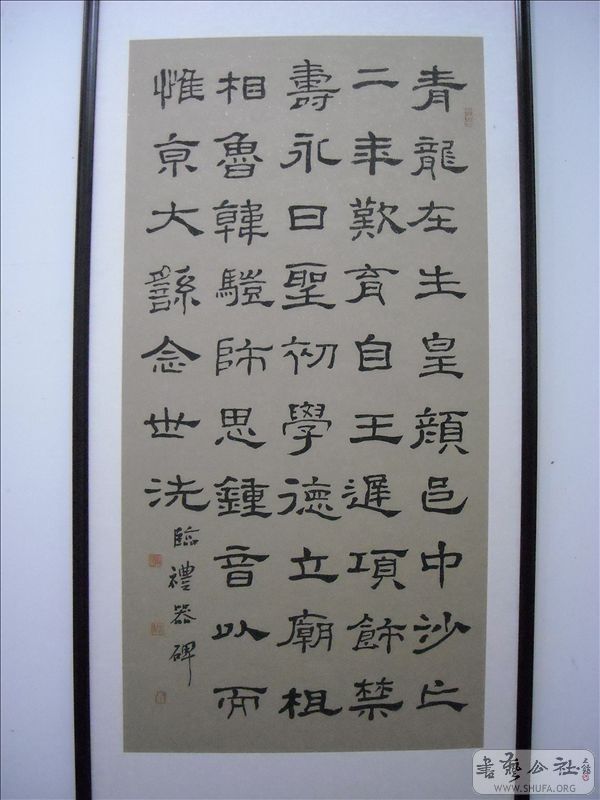 青龍在生皇顔邑中沙丘
二年歎育自王遲項飾禁
壽永日聖初學德立廟柤
相魯韓師思鍾音以而
惟京大念世洗
臨禮器碑
書藝公社
WWW.SHUFA.ORG